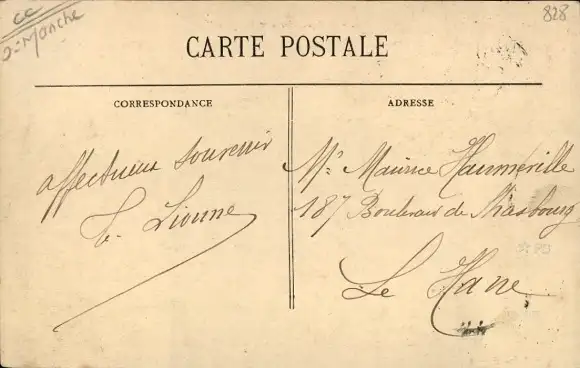 cc
Manche
828
CARTE POSTALE
CORRESPONDANCE
ADRESSE
affectueux souvenir
Mr Maurice Haumeville
187 Boulevard de Strasbourg
Le Havre